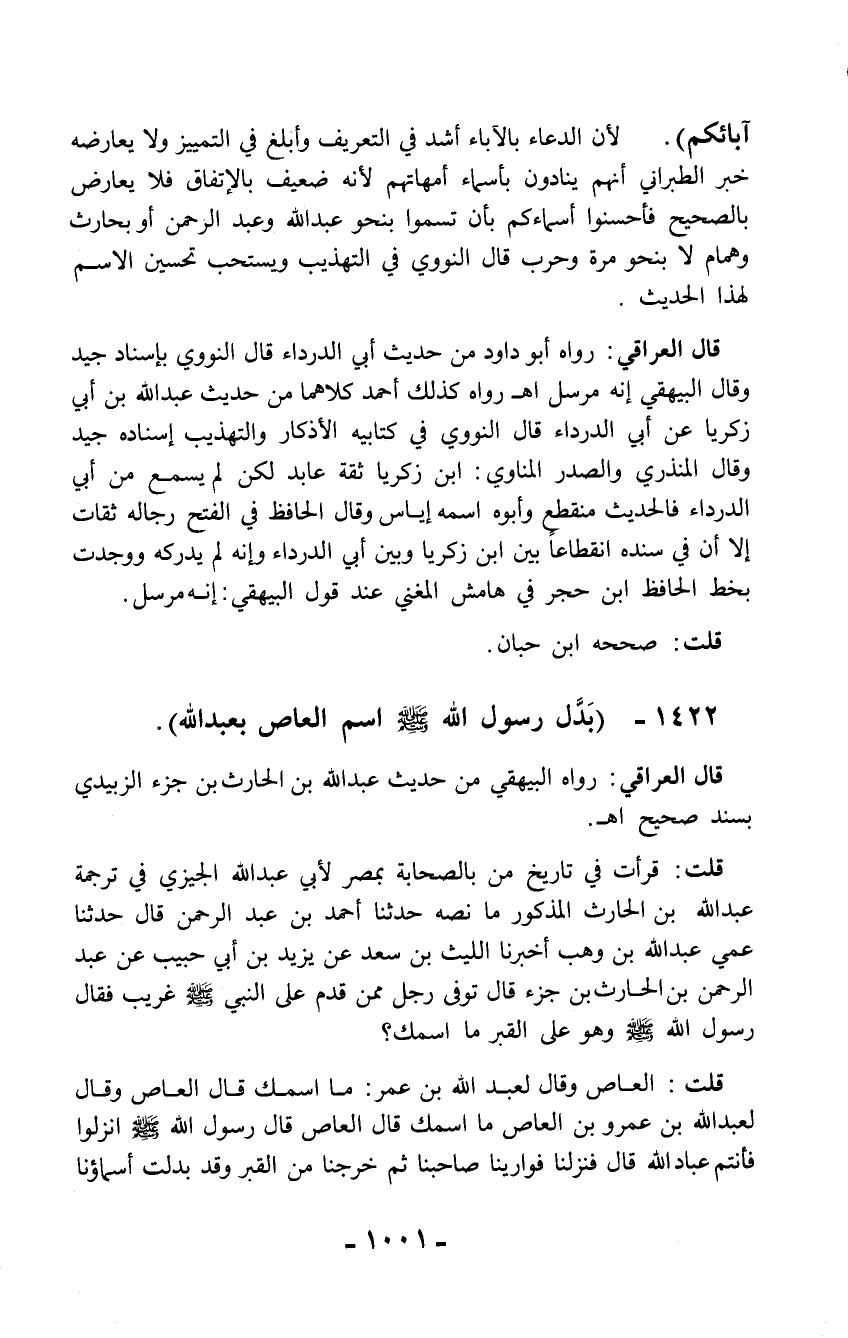 آبائكم). لأن الدعاء بالآباء أشد في التعريف وأبلغ في التمييز ولا يعارضه
خبر الطبراني أنهم ينادون بأسماء أمهاتهم لأنه ضعيف بالإتفاق فلا يعارض
بالصحيح فأحسنوا أسماءكم بأن تسموا بنحو عبدالله وعبد الرحمن أو بحارث
وهمام لا بنحو مرة وحرب قال النووي في التهذيب ويستحب تحسين الاسم
لهذا الحديث .
قال العراقي: رواه أبو داود من حديث أبي الدرداء قال النووي بإسناد جيد
وقال البيهقي إنه مرسل اهـ رواه كذلك أحمد كلاهما من حديث عبدالله بن أبي
زكريا عن أبي الدرداء قال النووي في كتابيه الأذكار والتهذيب إسناده جيد
وقال المنذري والصدر المناوي: ابن زكريا ثقة عابد لكن لم يسمع من أبي
الدرداء فالحديث منقطع وأبوه اسمه إياس وقال الحافظ في الفتح رجاله ثقات
إلا أن في سنده انقطاعاً بين ابن زكريا وبين أبي الدرداء وإنه لم يدركه ووجدت
بخط الحافظ ابن حجر في هامش المغني عند قول البيهقي: إنه مرسل.
قلت: صححه ابن حبان.
١٤٢٢ - (بَدَّل رسول الله ﷺ اسم العاص بعبدالله).
قال العراقي: رواه البيهقي من حديث عبدالله بن الحارث بن جزء الزبيدي
بسند صحيح اهـ.
قلت: قرأت في تاريخ من بالصحابة بمصر لأبي عبدالله الجيزي في ترجمة
عبدالله بن الحارث المذكور ما نصه حدثنا أحمد بن عبد الرحمن قال حدثنا
عمي عبدالله بن وهب أخبرنا الليث بن سعد عن يزيد بن أبي حبيب عن عبد
الرحمن بن الحارث بن جزء قال توفى رجل ممن قدم على النبي ﷺ غريب فقال
رسول الله ﷺ وهو على القبر ما اسمك؟
قلت : العاص وقال لعبد الله بن عمر: ما اسمك قال العاص وقال
لعبدالله بن عمرو بن العاص ما اسمك قال العاص قال رسول الله ﷺ انزلوا
فأنتم عباد الله قال فنزلنا فوارينا صاحبنا ثم خرجنا من القبر وقد بدلت أسماؤنا
- ١٠٠١ -